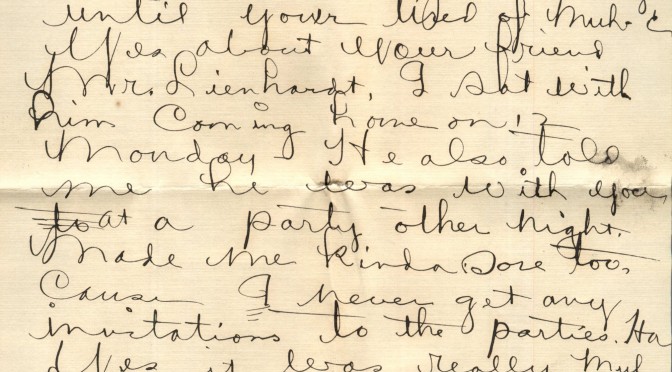 until your tired of Muh- &
Yes about your friend
Mr. Lienhardt, I sat with
him Coming home on 12
Monday - He also told
me he was with you
to at a party other night.
Made me kinda sore too,
Cause I never get any
invitations to the parties. Ha
Yes it was really Muh